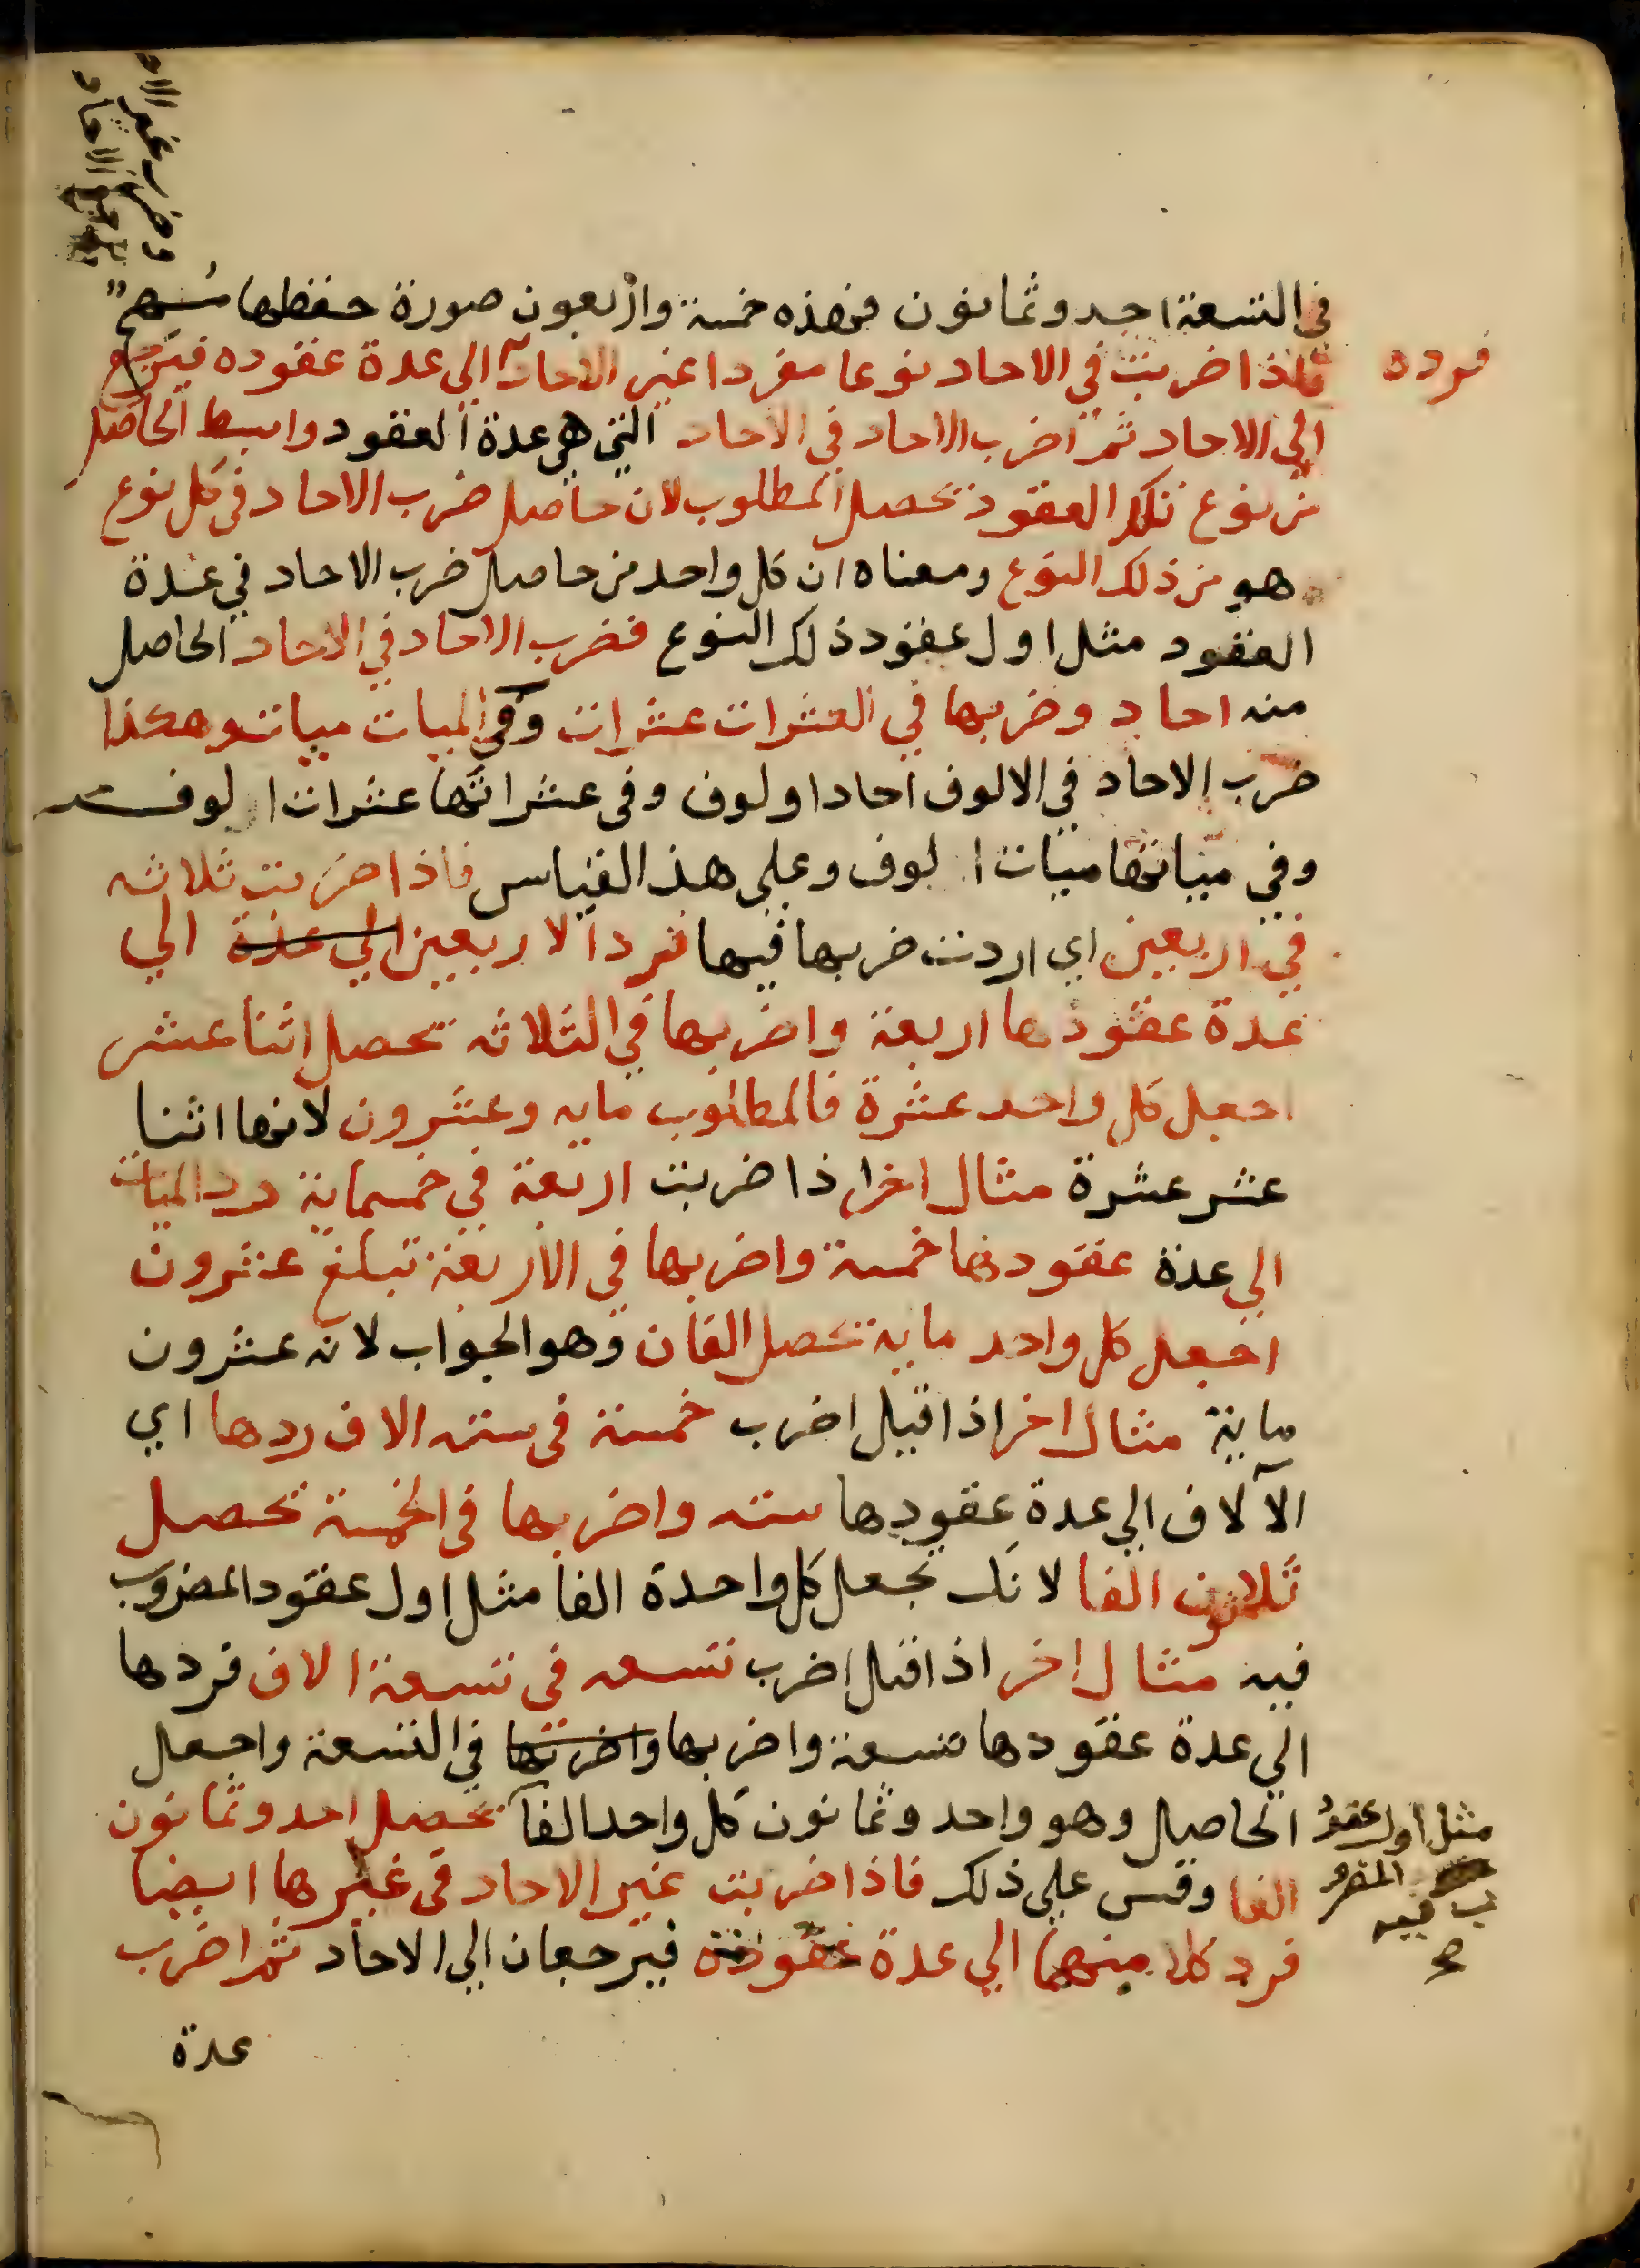 في التسعة احد وثمانون فهذه خمسة واربعون صورة حفظها مهم
فرده
فاذا ضربت في الاحاد نوعا مفردا غير الاحاد الي عدة عقوده فيرجع
الي الاحاد ثم اضرب الاحاد في الاحاد التي هي عدة العقود وابسط الحاصل
من نوع تلك العقود تحصل المطلوب لان حاصل ضرب الاحاد في كل نوع
هو من ذلك النوع ومعناه ان كل واحد من حاصل ضرب الاحاد في عدة
العقود مثل اول عقود ذلك النوع فضرب الاحاد في الاحاد الحاصل
منه احاد وضربها في العشرات عشرات وفي الميات ميات وهكذا
ضرب الاحاد في الالوف احاد اولوف وفي عشراتها عشرات الوف
وفي مياتها ميات الوف وعلي هذا القياس فاذا ضربت ثلاثه
في اربعين اي اردت ضربها فيها فرد الاربعين الي عدة الي
عدة عقودها اربعة واضربها في الثلاثه تحصل اثنا عشر
اجعل كل واحد عشرة فالمطلوب مايه وعشرون لانها اثنا
عشر عشرة مثال اخر اذا ضربت اربعة في خمسماية رد الميات
الي عدة عقودها خمسة واضربها في الاربعة تبلغ عشرون
اجعل كل واحد ماية تحصل الفان وهو الجواب لانه عشرون
ماية مثال اخر اذا قيل اضرب خمسة في سته الاف ردها اي
الآلاف الي عدة عقودها سته واضربها في الخمسة تحصل
ثلاثون الفا لانك تجعل كل واحدة الفا مثل اول عقود المضروب
فيه مثال اخر اذا قيل اضرب تسعه في تسعة الاف فردها
الي عدة عقودها تسعة واضربها واضربها في التسعة واجعل
الحاصل وهو واحد وثمانون كل واحد الفا تحصل احد وثمانون
مثل اول عقود
المضرو
ب فيه
صح
الفا وقس علي ذلك فاذا ضربت غير الاحاد في غيرها ايضا
فرد كلا منهما الي عدة عقوده فيرجعان الي الاحاد ثم اضرب
عدة